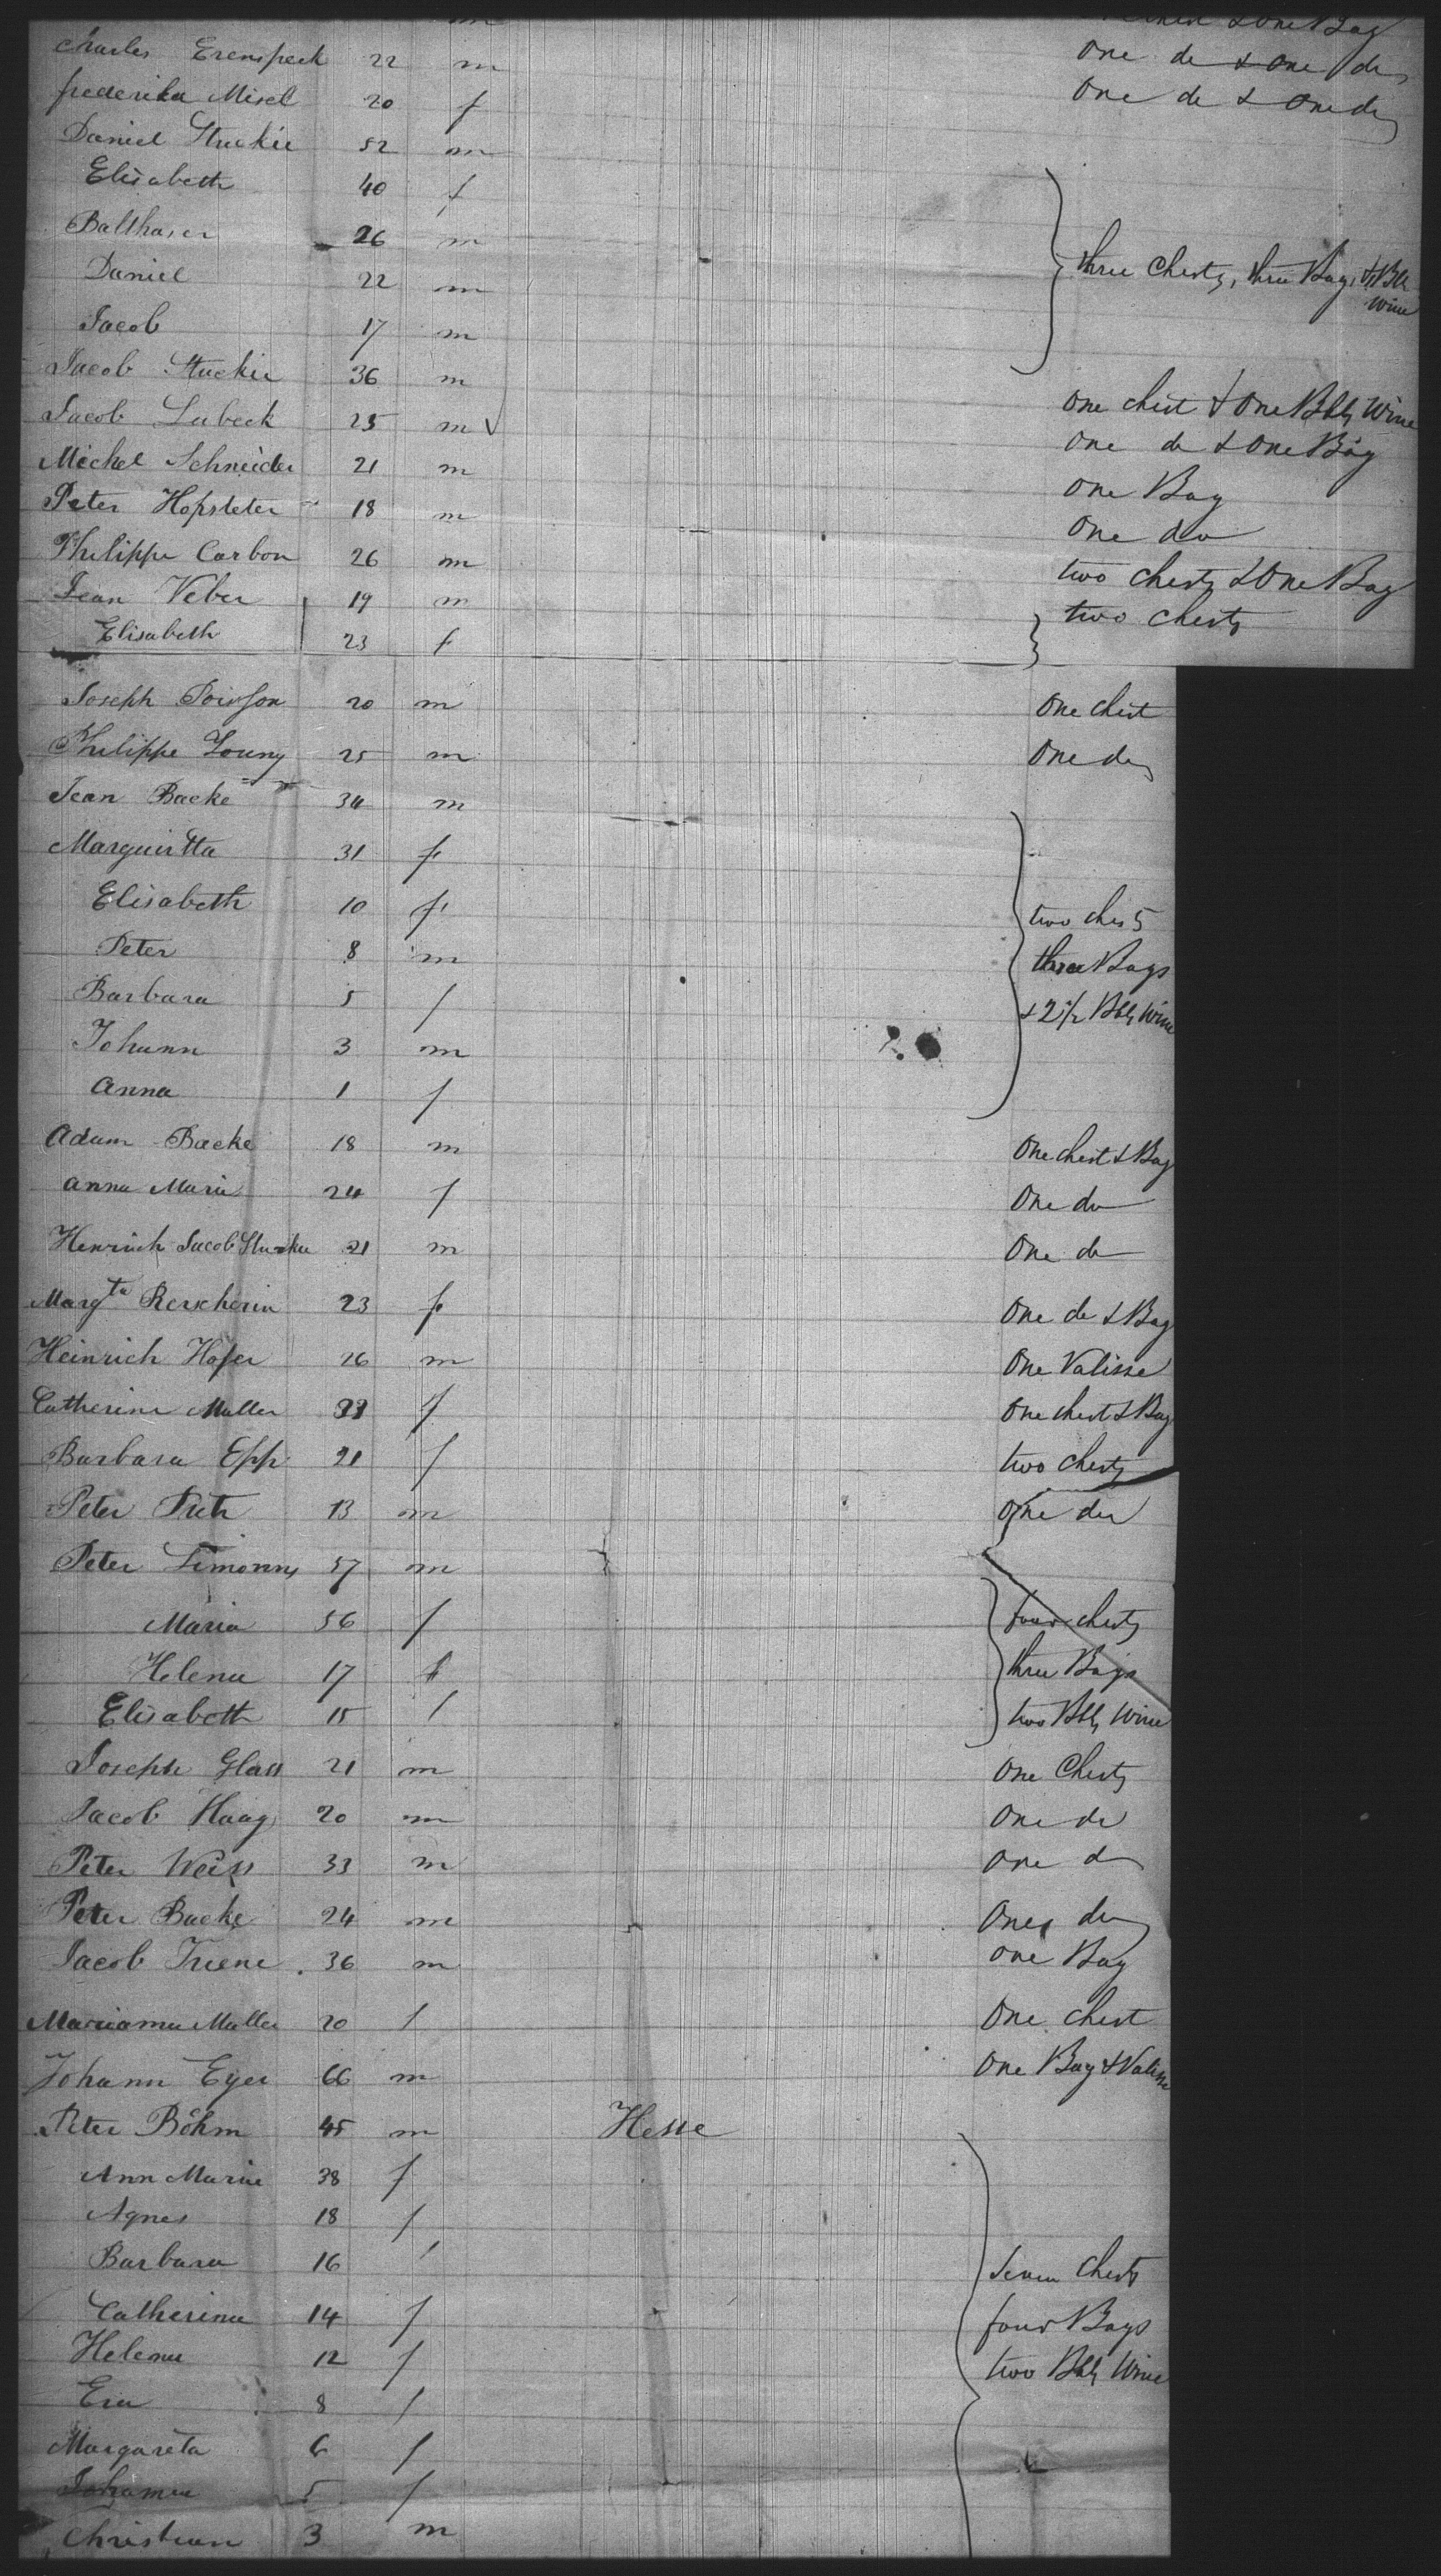 m & One Bag
Charles Erenspeck 22 m One do & One do
frederika Misel 20 f One do & One do
Daniel Stuckie 52 m
Elisabeth 40 f
Balthaser 26 m
Daniel 22 m three Chests, three Bags, & Bll Wine
Jacob 17 m
Jacob Stuckie 36 m One chest & One Bbls Wine
Jacob Lubeck 25 m One do & One Bag
Michel Schneider 21 m One Bag
Peter Hopsteter 18 m One do
Philippe Carbon 26 m two chests & One Bag
Jean Veber 19 m two chests
Elisabeth 23 f
Joseph Poirson 20 m One chest
Philippe Young 25 m One do
Jean Backe 34 m
Marguirtta 31 f
Elisabeth 10 f two ches 5
Peter 8 m three Bags
Barbara 5 f & 2 1/2 Bbls Wine
Johann 3 m
Anna 1 f
Adam Backe 18 m One chest & Bag
Anna Maria 24 f One do
Henrich Jacob 21 m One do
Margta Rercherin 23 f One do & Bag
Heinrich Hofer 26 m One Valisse
Catherine Muller f One chest & Bag
Barbara Epp 21 f two chests
Peter 13 m One do
Peter Simonny 57 m
Maria 56 f four chests
Helena 17 f three Bags
Elisabeth 15 f two Bbls Wine
Joseph Glass 21 m One Chests
Jacob Haag 20 m One do
Peter Weiss 33 m One do
Peter Backe 24 m One do
Jacob Triene 36 m One Bag
Marianna Muller 20 f One chest
Johann Eyer 66 m One Bag & Valisse
Peter Böhm 45 m Hesse
Ann Marie 38 f
Agnes 18 f
Barbara 16 f Seven Chests
Catherina 14 f four Bags
Helena 12 f two Bbls Wine
Eva 8 f
Margareta 6 f
Johanna 5 f
Christian 3 m